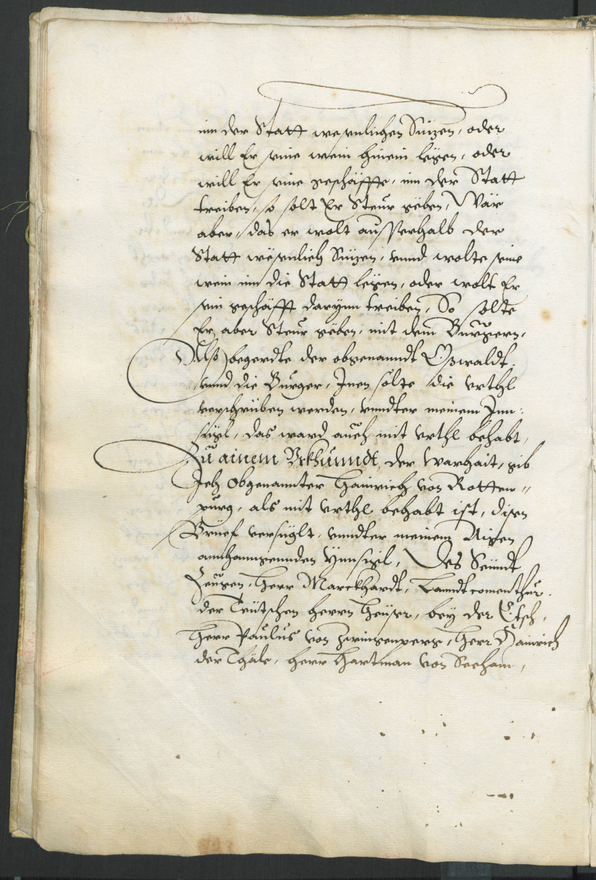 inn der Statt wesenlichen Sitzen, oder
will Er seine wein hinein legen, oder
will Er seine geschäffte, inn der Statt
treiben, so solt Er Steur geben, Wär
aber, das er wolt ausserhalb der
Statt wesenlich Sitzen, vnnd wolte seine
wein inn die Statt legen, oder wolt Er
sein geschäfft darynn treiben, So solte
Er aber Steur geben, mit den Burgern,
Also begerdte der obgenanndt Oswaldt,
vnnd die Burger, Inen solte die vrthl
verschriben werden, vnndter meinem Inn-
sigl, das ward auch mit vrthl behabt,
Zu ainem Vrkhunndt der Warhait, gib
Ich Obgenannter Hainrich von Rotten-
purg, als mit vrthl behabt ist, disen
Brief versiglt, vnndter meinem Aigen
anhanngennden Ynnsigl, Des Seindt
Zeugen, Herr Marckhardt, Lanndtcomenthur
der Teutschen herrn heuser, bey der Etsch,
Herr Paulus von Zwingenperg, Herr Hainrich
der , Herr Hartman von Seehaim,